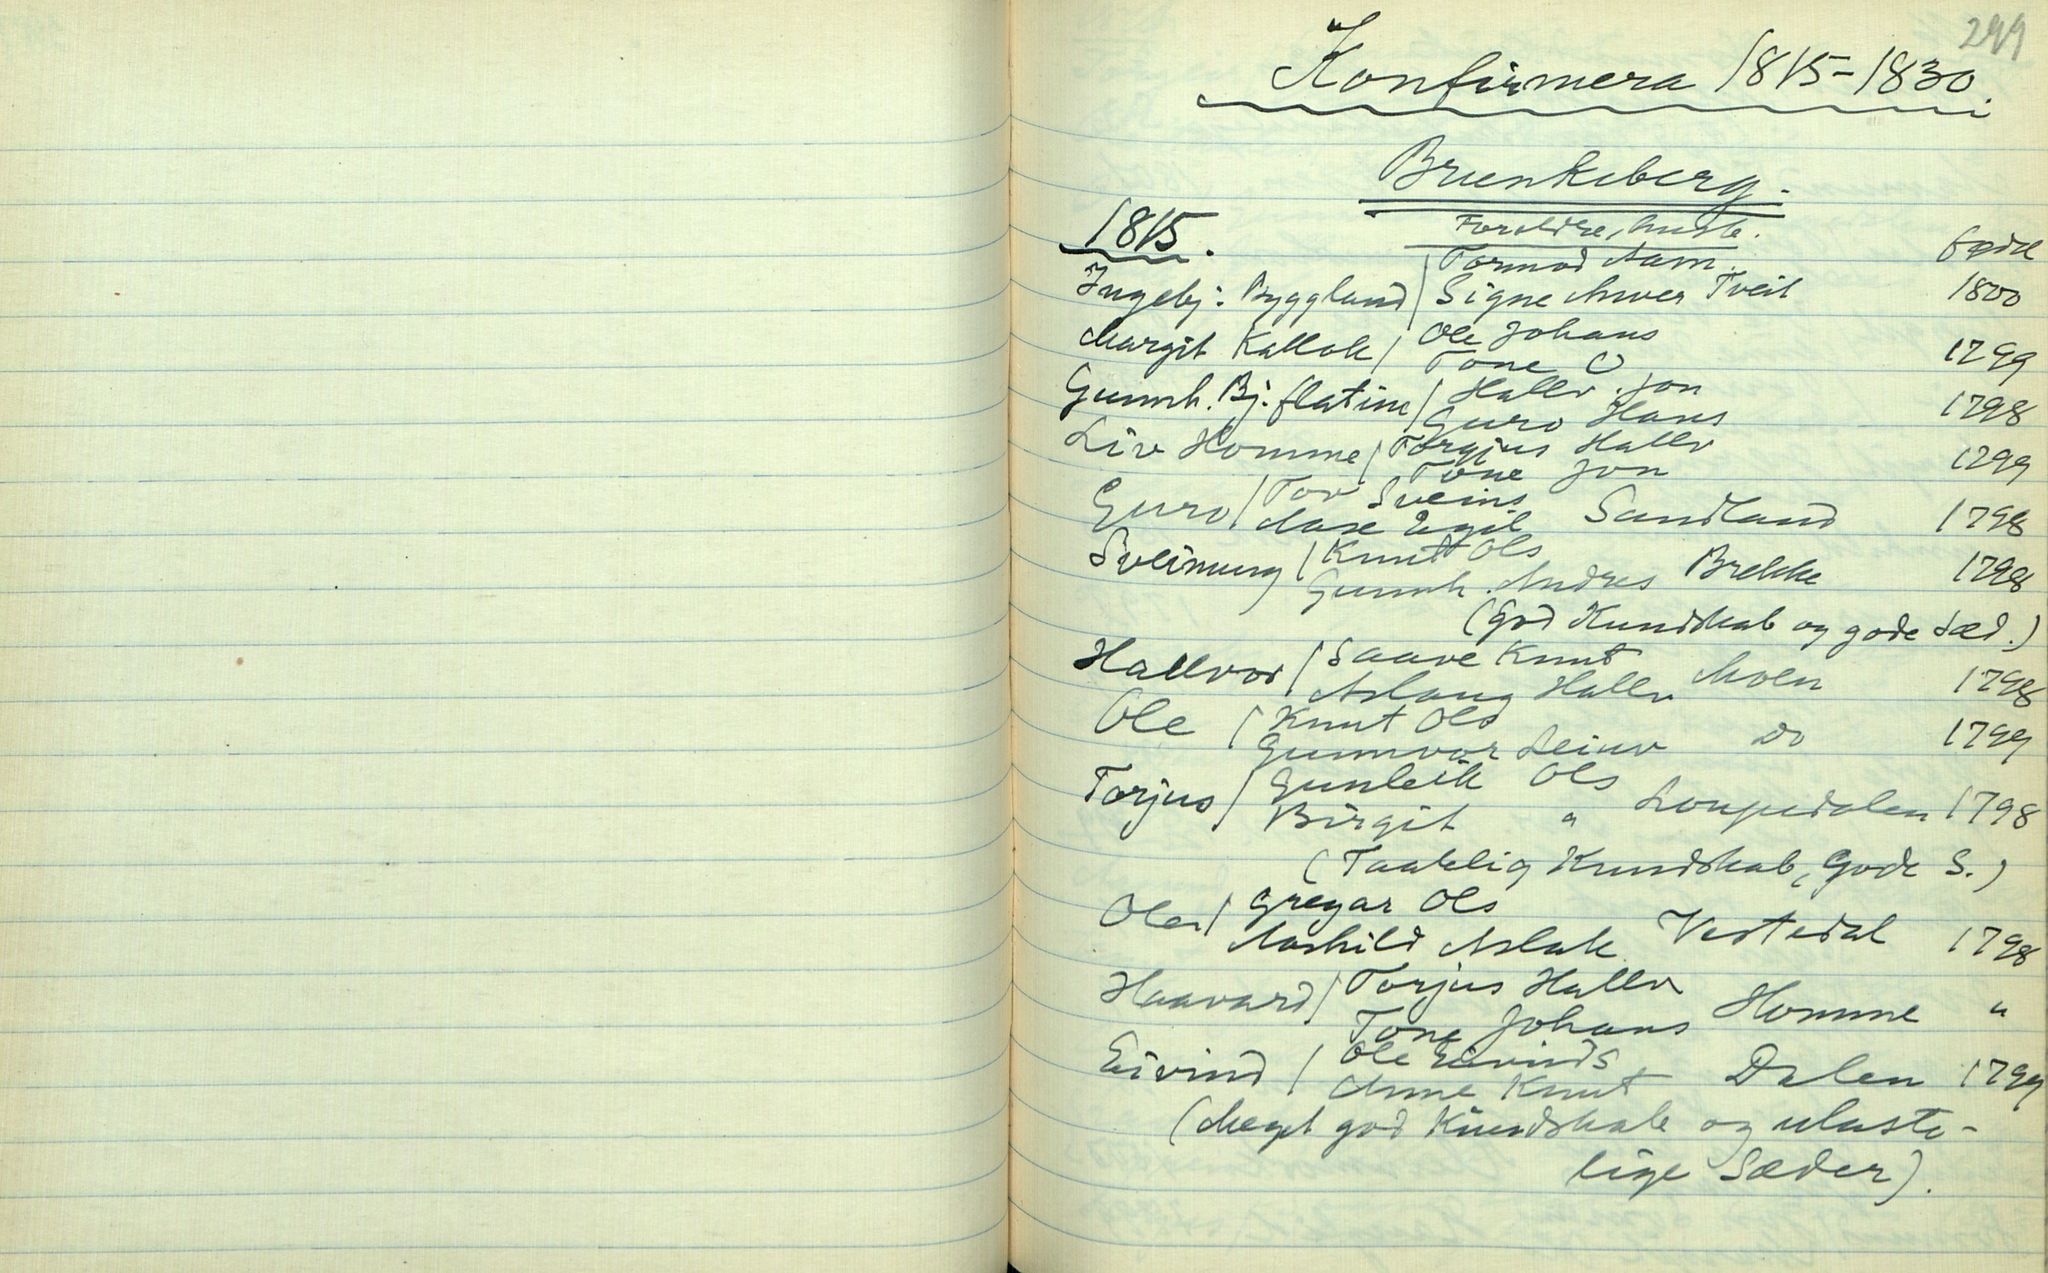 299
Konfirmera 1815-1830.
Brunkeberg.
1815. Foreldre, huste. Født
Ingebj: Bygglund / Tormod Aasm.
Signe Anver Tveit 1800
Margit Kallok / Ole Johans
Tone O 1799
Gunnh. Bj. flatin / Hallv. Jon
Guro Hans 1798
Liv Homme / Torgjus Hallv
Tone Jon 1799
Guro / Tov Sveins
Aase Egil Sundland 1798
Sveinung / Knut Ols
Gunnh. Andres Brekke 1798
(God Kundskab og gode Sæd.)
Hallvor / Saave Knut
Aslaug Hallv Moen 1798
Ole / Knut Ols
Gunnvor Leiuv Do 1799
Torjus / Gunleik Ols
Birgit " Loupedalen 1798
(Taalelig Kundskab, Gode S.)
Ole / Gregar Ols
Aashild Aslak Vestedal 1798
Haavard / Torjus Hallv
Tone Johans Homme "
Eivind / Ole Eivinds
Anne Knut Dalen 1799
(Meget god Kundskab og ulaste-
lige Sæder).